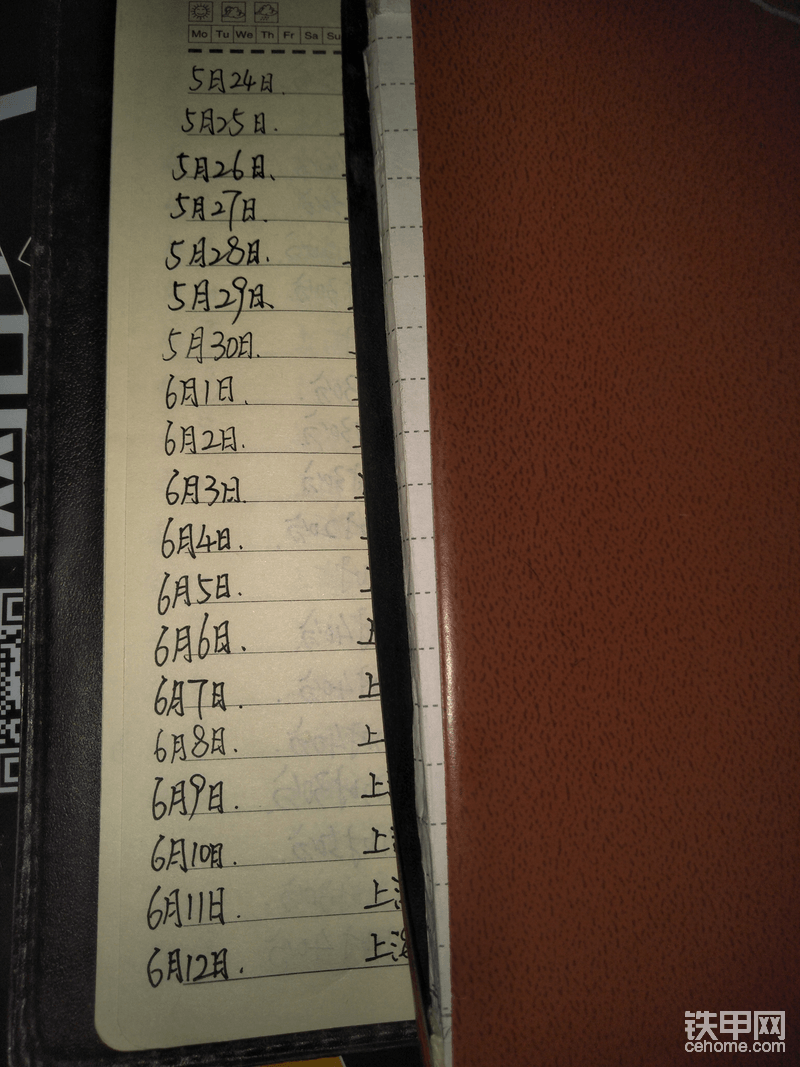 Mo Tu We Th Fr Sa Su
5月24日.
5月25日.
5月26日、
5月27日.
5月28日.
5月29日、
5月30日.
6月1日.
6月2日.
6月3日.
6月4日.
6月5日.
6月6日.
6月7日. 上
6月8日. 上
6月9日. 上
6月10日. 上
6月11日. 上
6月12日. 上
铁甲网
cehome.com